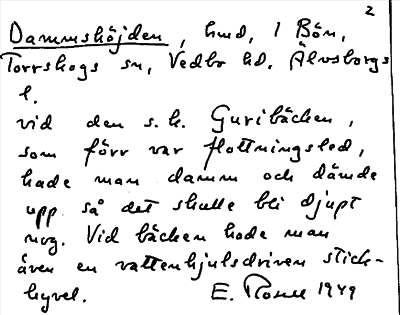 2
Dammshöjden, hmd, 1 Bön,
Torrskogs sn, Vedbo hd. Älvsborgs
l.
vid den s.k. Guribäcken,
som förr var flottningsled,
hade man damm och dämde
upp så det skulle bli djupt
nog. Vid bäcken hade man
även en vattenhjulsdriven stick-
hyvel. E. 1949